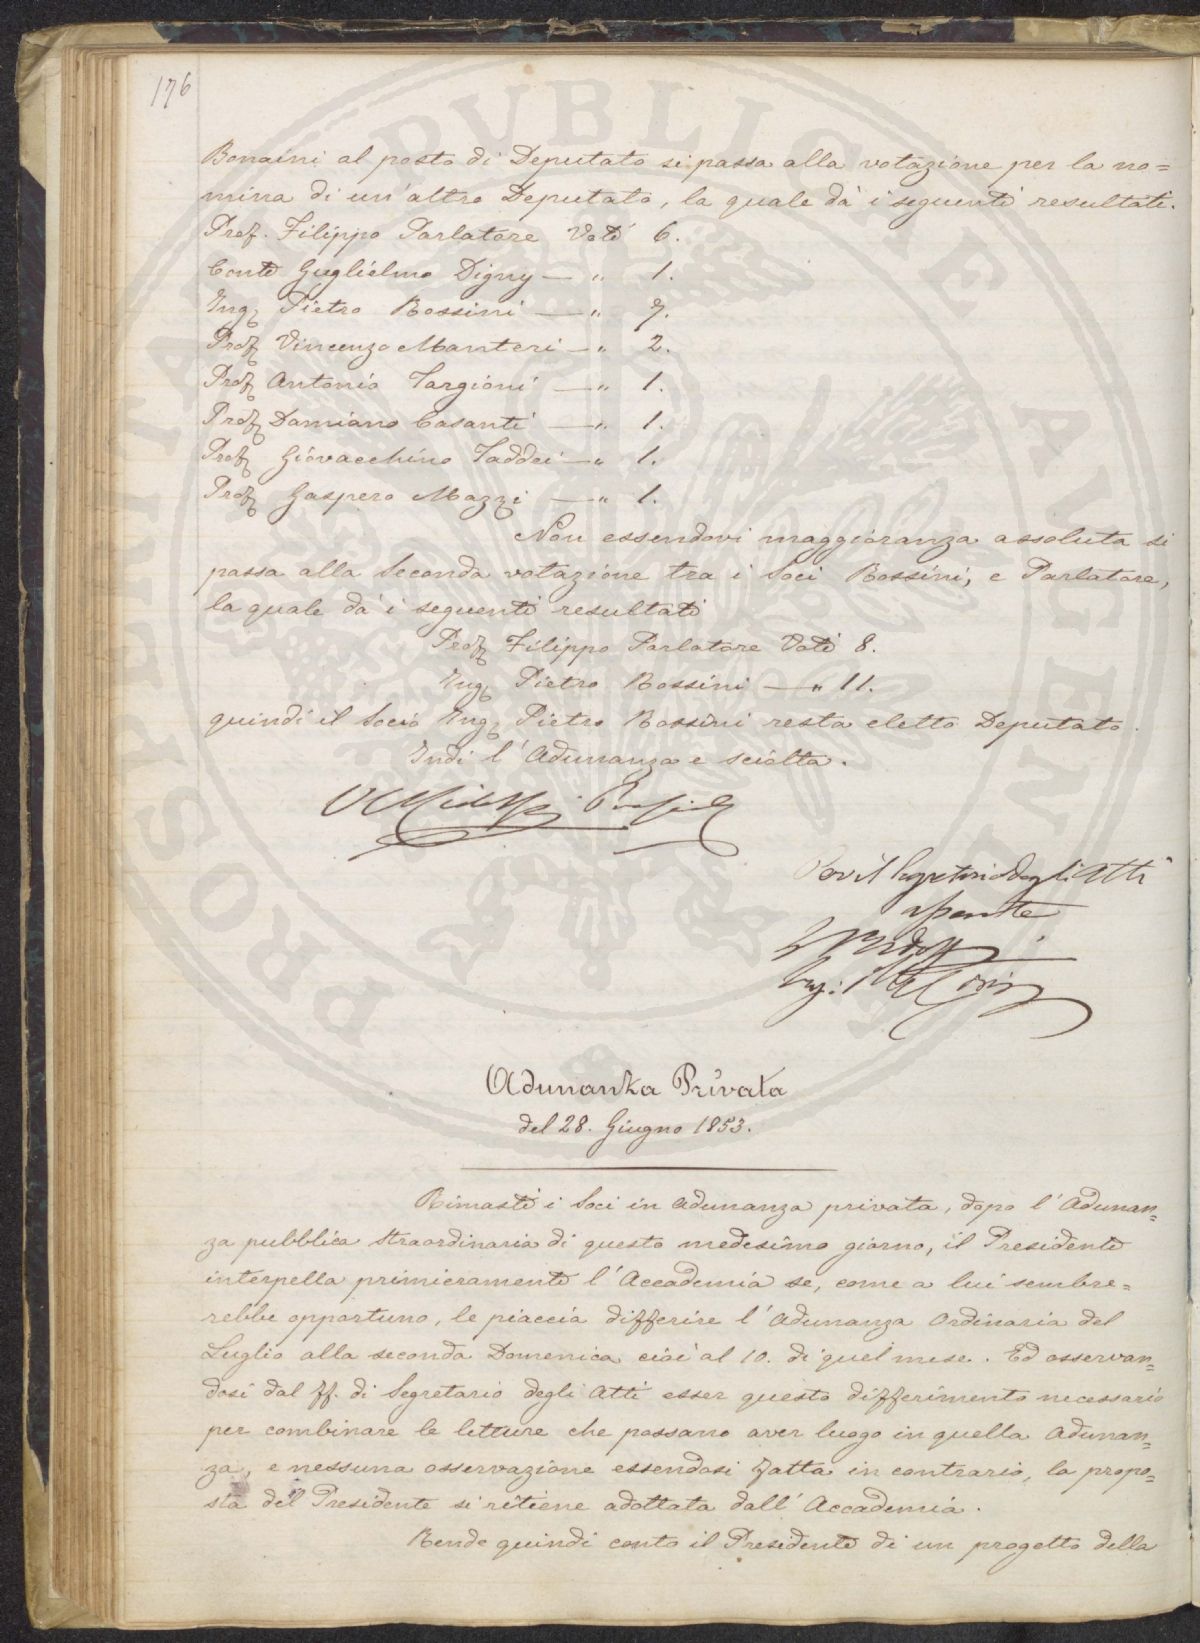 176
Bonaini al posto di Deputato si passa alla votazione per la no=
mina di un'altro Deputato, la quale dà i seguenti resultati.
Prof. Filippo Parlatore Voti 6.
Conte Guglielmo Digny — " 1.
Ing. Pietro Rossini — " 7.
Prof. Vincenzo Manteri — " 2.
Prof. Antonio Targioni — " 1.
Prof. Damiano Casanti — " 1.
Prof. Giovacchino Taddei — " 1.
Prof. Gaspero Mazzi — " 1.
Non essendovi maggioranza assoluta si
passa alla Seconda votazione tra i Soci Rossini, e Parlatore,
la quale dà i seguenti resultati
Prof. Filippo Parlatore Voti 8.
Ing. Pietro Rossini — " 11.
quindi il Socio Ing. Pietro Rossini resta eletto Deputato.
Indi l'Adunanza è sciolta.
Per il Segretario degli Atti
assente
Adunanza Privata
del 28. Giugno 1853.
Rimasti i Soci in adunanza privata, dopo l'Adunan=
za pubblica straordinaria di questo medesimo giorno, il Presidente
interpella primieramente l'Accademia se, come a lui sembre=
rebbe opportuno, le piaccia differire l'adunanza ordinaria del
Luglio alla seconda Domenica cioè al 10. di quel mese. Ed osservan=
dosi dal ff. di Segretario degli Atti esser questo differimento necessario
per combinare le letture che possano aver luogo in quella Adunan=
za, e nessuna osservazione essendosi fatta in contrario, la propo=
sta del Presidente si ritiene adottata dall'Accademia.
Rende quindi conto il Presidente di un progetto della
PROSPERITATI PUBLICAE AUGENDAE